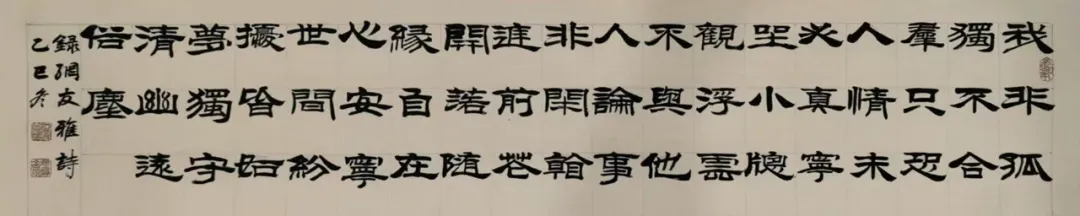 我非孤
獨不合
羣只恐
人情未
必真寧
坐小牕
觀浮雲
不與他
人論事
非閑看
廷前花
開落随
緣自在
心安寧
世間紛
擾皆如
夢獨守
清幽遠
俗塵
錄網友雅詩
乙巳冬